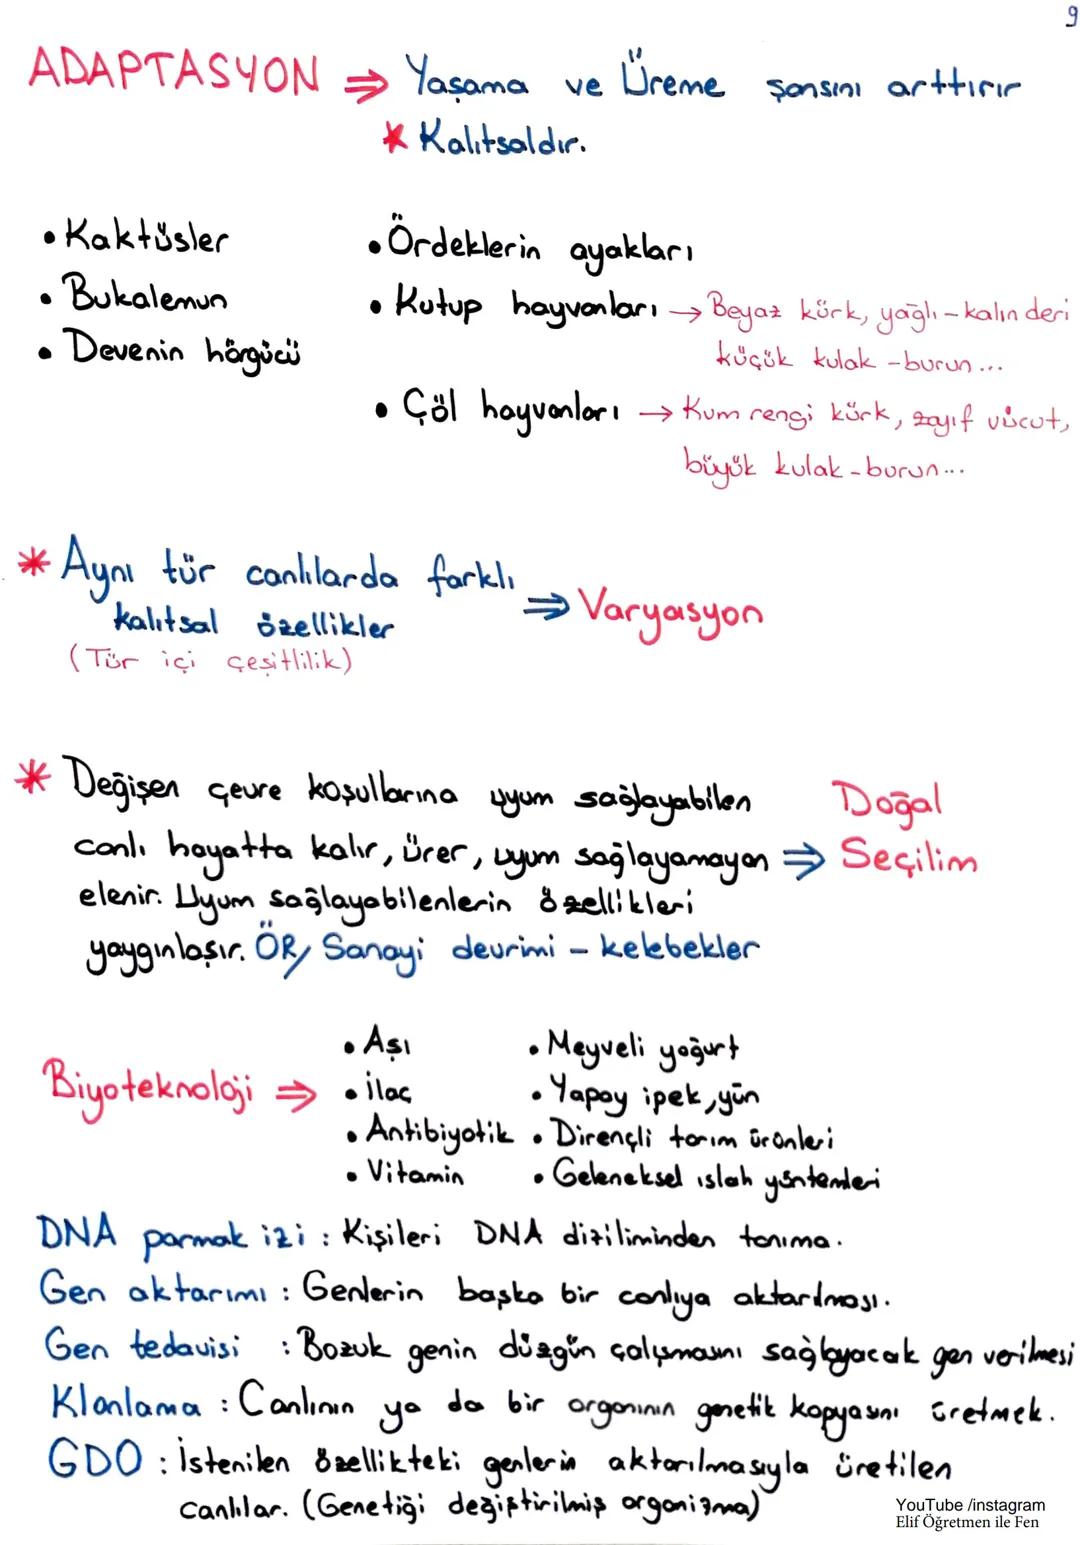 9
ADAPTASYON ⇒ Yaşama ve Üreme şansını arttırır
* Kalıtsaldır.
• Kaktüsler
• Bukalemun
• Devenin hörgücü
• Ördeklerin ayakları
• Kutup hayvanları → Beyaz kürk, yağlı-kalın deri
küçük kulak-burun...
• Çöl hayvanları → Kum rengi kürk, zayıf vücut,
büyük kulak-burun...
* Aynı tür canlılarda farklı
kalıtsal özellikler ⇒ Varyasyon
(Tür içi çeşitlilik)
* Değişen çevre koşullarına uyum sağlayabilen
canlı hayatta kalır, ürer, uyum sağlayamayan ⇒ Doğal Seçilim
elenir. Uyum sağlayabilenlerin özellikleri
yaygınlaşır. ÖR/ Sanayi devrimi - kelebekler
Biyoteknoloji ⇒
• Aşı
• İlaç
• Antibiyotik
• Vitamin
• Meyveli yoğurt
• Yapay ipek, yün
• Dirençli tarım ürünleri
• Geleneksel ıslah yöntemleri
DNA parmak izi : Kişileri DNA diziliminden tanıma.
Gen aktarımı : Genlerin başka bir canlıya aktarılması.
Gen tedavisi : Bozuk genin düzgün çalışmasını sağlayacak gen verilmesi
Klonlama : Canlının ya da bir organının genetik kopyasını üretmek.
GDO : İstenilen özellikteki genlerin aktarılmasıyla üretilen
canlılar. (Genetiği değiştirilmiş organizma)
YouTube /instagram
Elif Öğretmen ile Fen